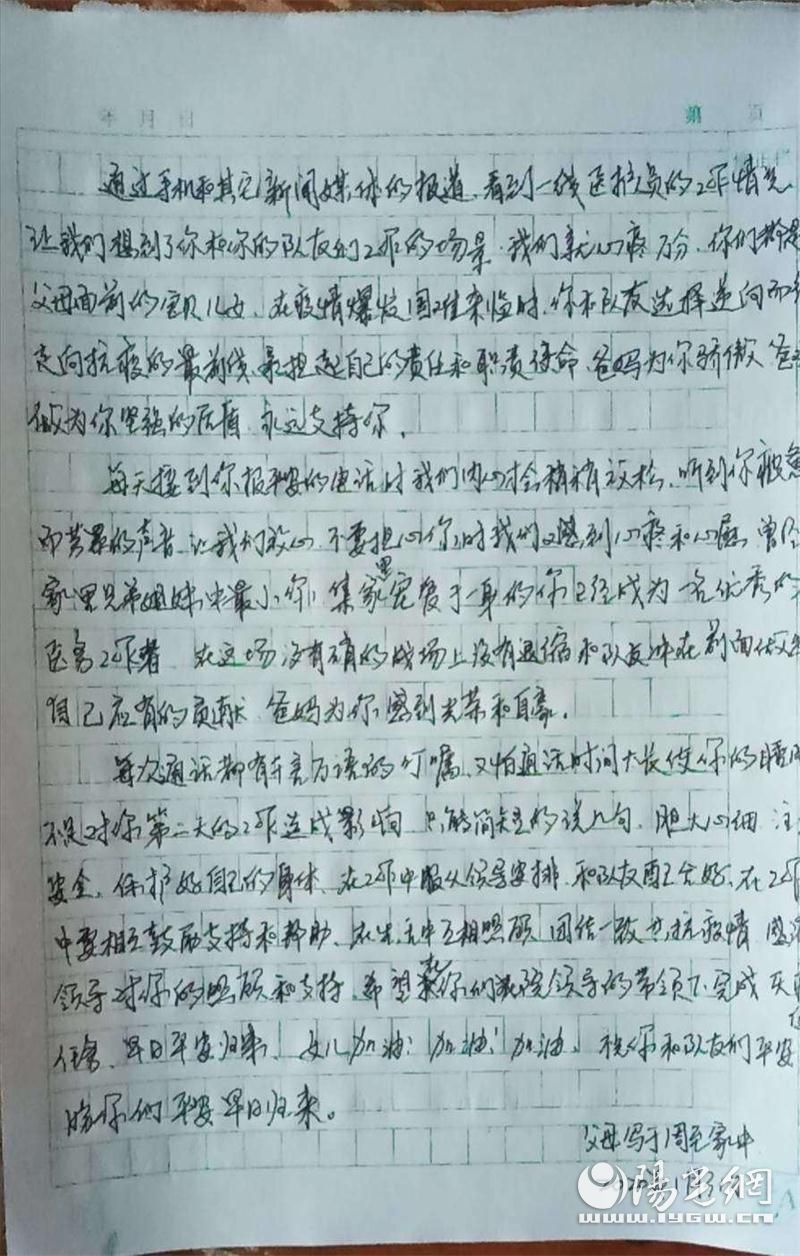 年 月 日 第 页
通过手机和其它新闻媒体的报道，看到一线医护人员的工作情况
让我们想到了你和你的队友们工作的场景，我们就心疼万分，你们都是
父母面前的宝贝儿女，在疫情爆发国难来临时，你和队友选择逆向而行
走向抗疫的最前线，承担起自己的责任和职责使命，爸妈为你骄傲，爸
做为你坚强的后盾，永远支持你。
每天接到你报平安的电话时我们内心才会稍稍放松，听到你疲惫
而劳累的声音，让我们放心，不要担心你，时我们又感到心疼和心慰，曾经
家里兄弟姐妹中最小你，集家里宠爱于一身的你已经成为一名优秀的
医务工作者，在这场没有硝的战场上没有退缩和队友冲在前面做出
自己应有的贡献，爸妈为你感到光荣和自豪。
每次通话都有千言万语的叮嘱，又怕通话时间太长使你的睡眠
不足对你第二天的工作造成影响，只能简短的说几句，胆大心细，注
安全，保护好自己的身体，在工作中服从领导安排，和队友配合好，在工作
中要相互鼓励支持和帮助，在生活中互相照顾，团结一致共抗疫情，感谢
领导对你的照顾和支持，希望在你们医院领导的带领下，完成
任务，早日平安归来，女儿加油！加油！加油，祝你和队友们平安
你们平安早日归来。
父母写于周至家中
2020年
陽光網
www.iygw.cn